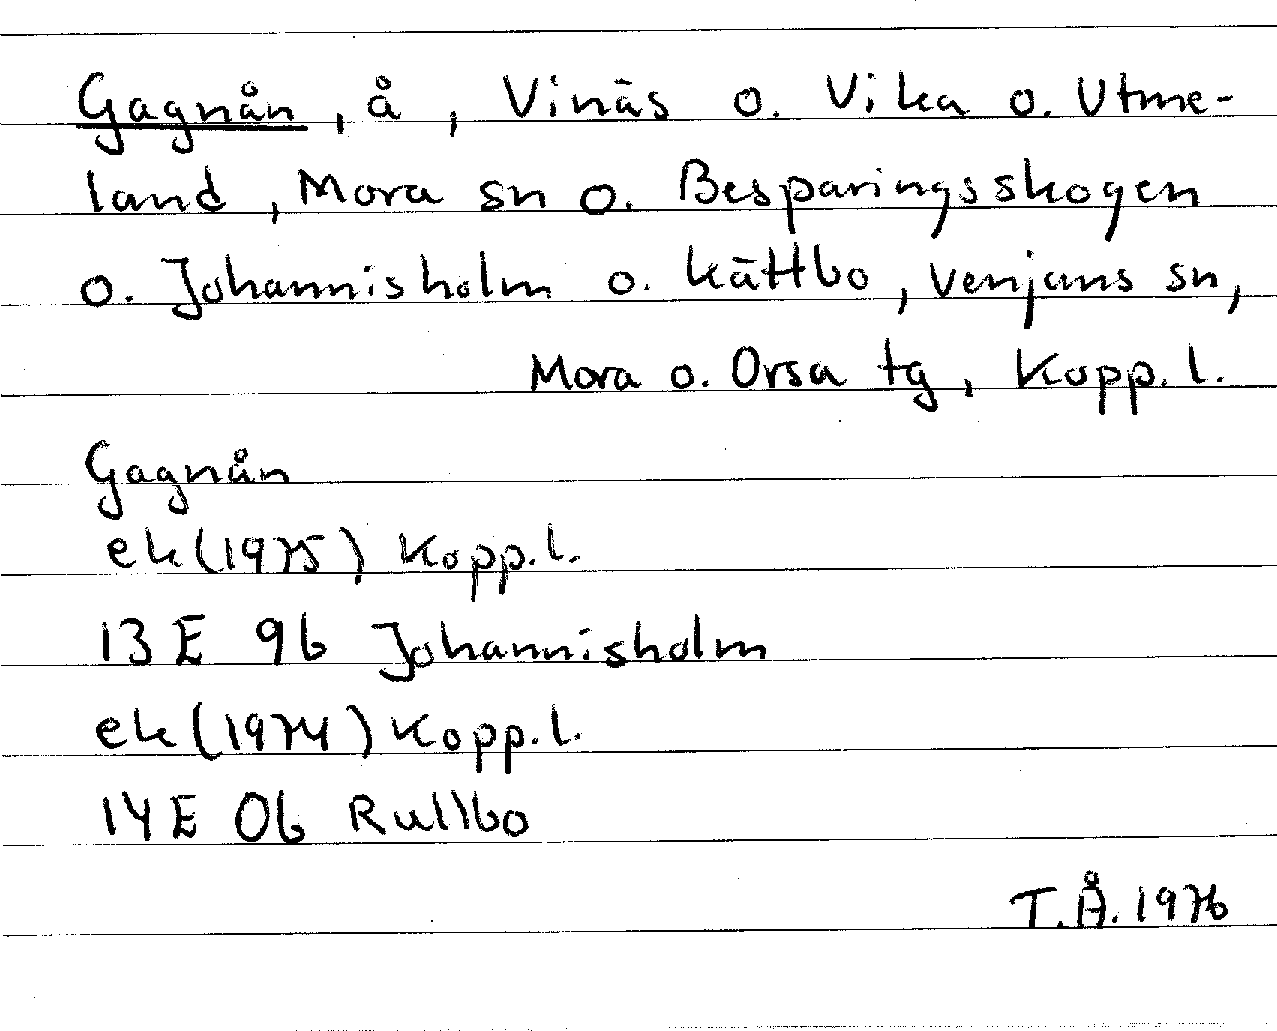 Gagnån, å, Vinäs o. Vika o. Utme-
land, Mora sn o. Besparingsskogen
o. Johannisholm o. Kättbo, Venjans sn,
Mora o. Orsa tg, Kopp. l.
Gagnån
ek (1975) Kopp. l.
13 E 9b Johannisholm
ek (1974) Kopp. l.
14 E 0b Rullbo
T.Å. 1976